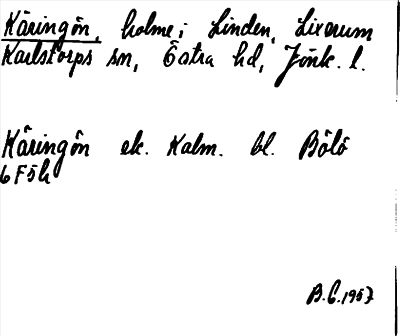 Käringön, holme i Linden, Lixerum
Karlstorps sn, Östra hd, Jönk. l.
Käringön ek. Kalm. bl. Bölö
6 F 5 h
B.E. 1957